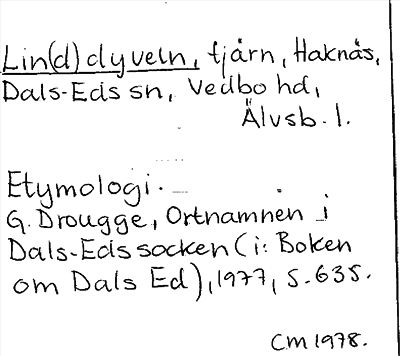 Lin(d)dyveln, tjärn, Haknäs,
Dals-Eds sn, Vedbo hd,
Älvsb. l.
Etymologi.
G. Drougge, Ortnamnen i
Dals-Eds socken (i: Boken
om Dals Ed), 1977, s. 635.
CM 1978.